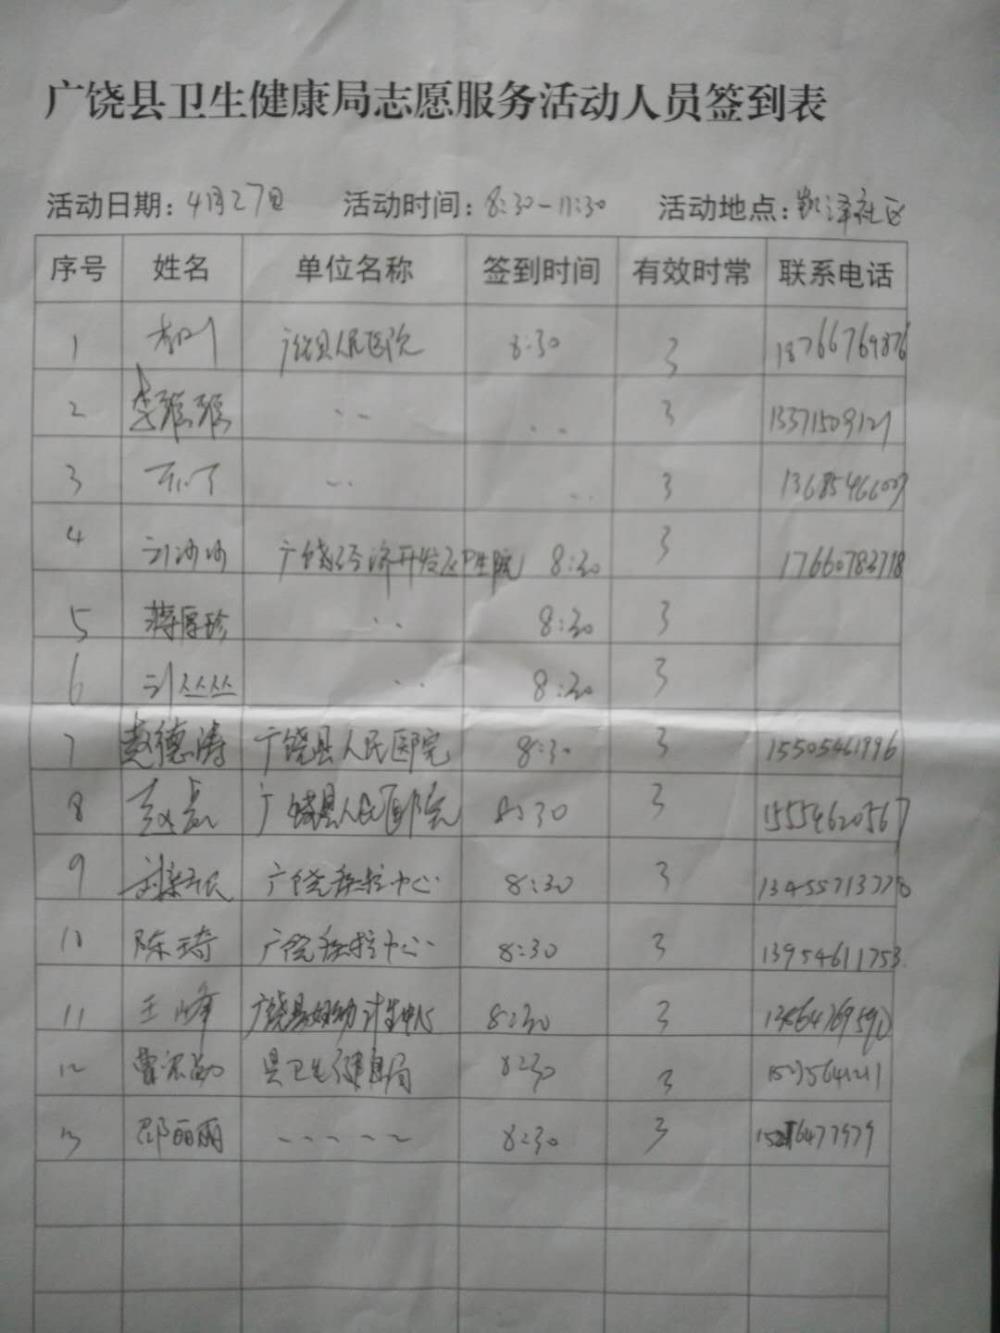 广饶县卫生健康局志愿服务活动人员签到表
活动日期：4月27日 活动时间：8:30-11:30 活动地点：凯泽社区
序号 姓名 单位名称 签到时间 有效时常 联系电话
1 广饶县人民医院 8:30 3 18766769876
2 李 ·· ·· 3 13371509121
3 ·· ·· 3
4 刘沙沙 广饶经济开发区卫生院 8:30 3 17660783718
5 蒋厚珍 ·· 8:30 3
6 刘丛丛 ·· 8:30 3
7 赵德涛 广饶县人民医院 8:30 3 15505461996
8 赵磊 广饶县人民医院 8:30 3 15554620567
9 广饶疾控中心 8:30 3 13455713778
10 陈琦 广饶疾控中心 8:30 3 13954611753
11 王峰 广饶县妇幼计生中心 8:30 3
12 县卫生健康局 8:30 3
13 邵丽丽 ----- 8:30 3